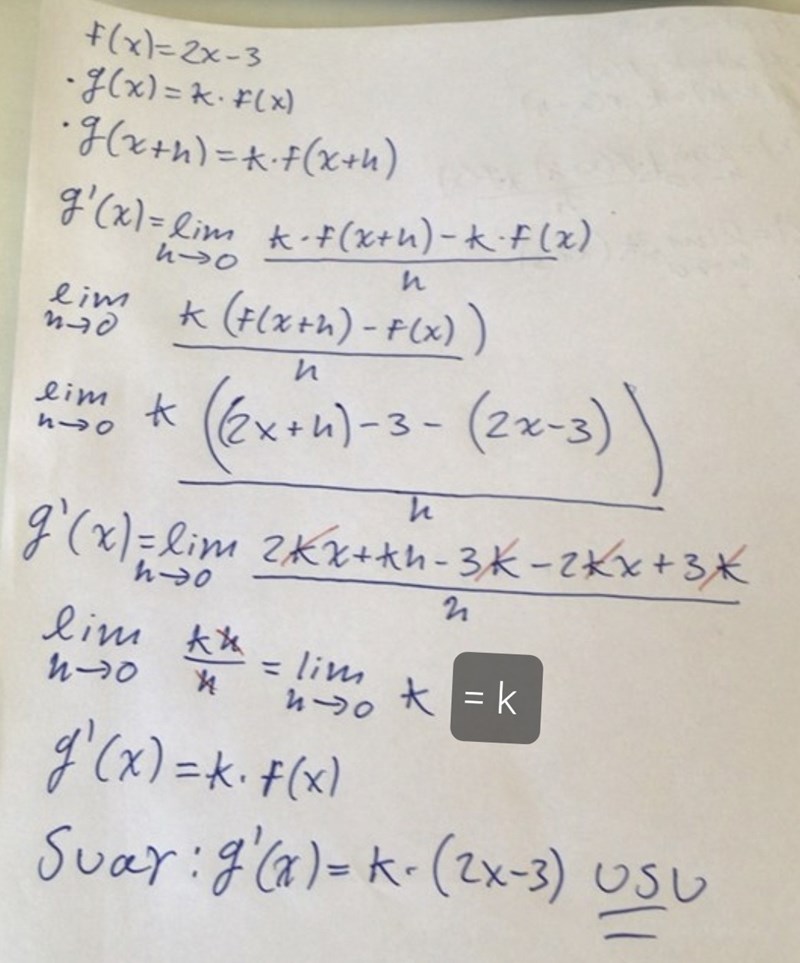 f(x)=2x-3
· g(x)=k·f(x)
· g(x+h)=k·f(x+h)
g'(x)=lim h→0 k·f(x+h)-k·f(x) / h
lim h→0 k(f(x+h)-f(x)) / h
lim h→0 k((2x+h)-3-(2x-3)) / h
g'(x)=lim h→0 2kx+kh-3k-2kx+3k / h
lim h→0 kh / h = lim h→0 k = k
g'(x)=k·f(x)
Svar: g'(x)=k·(2x-3) VSV